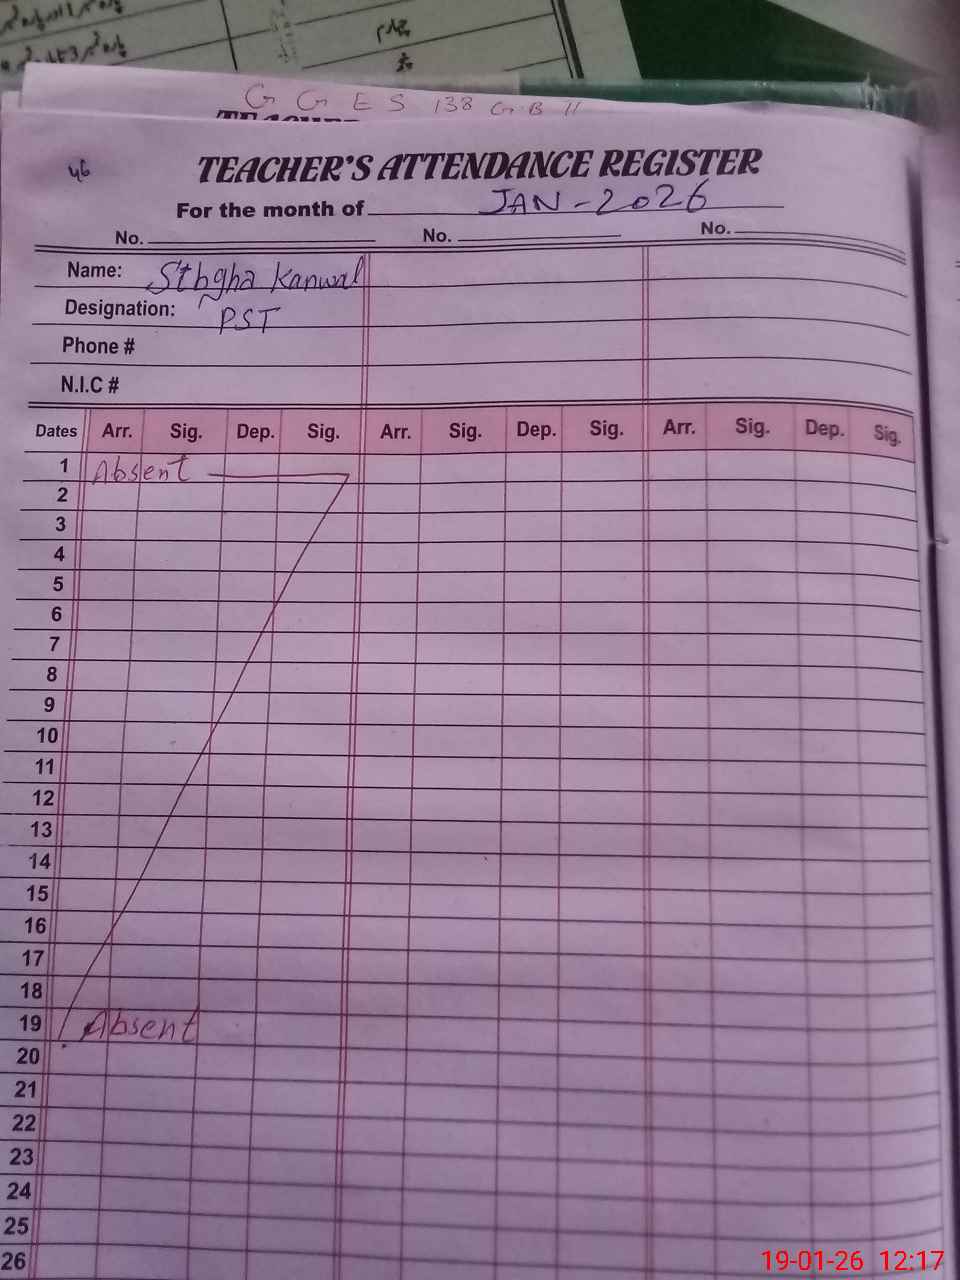 G G E S 138 G B II
46
TEACHER'S ATTENDANCE REGISTER
For the month of JAN-2026
No. No. No.
Name: Sibgha Kanwal
Designation: PST
Phone #
N.I.C #
Dates Arr. Sig. Dep. Sig. Arr. Sig. Dep. Sig. Arr. Sig. Dep. Sig.
1 Absent
2
3
4
5
6
7
8
9
10
11
12
13
14
15
16
17
18
19 Absent
20
21
22
23
24
25
26
19-01-26 12:17